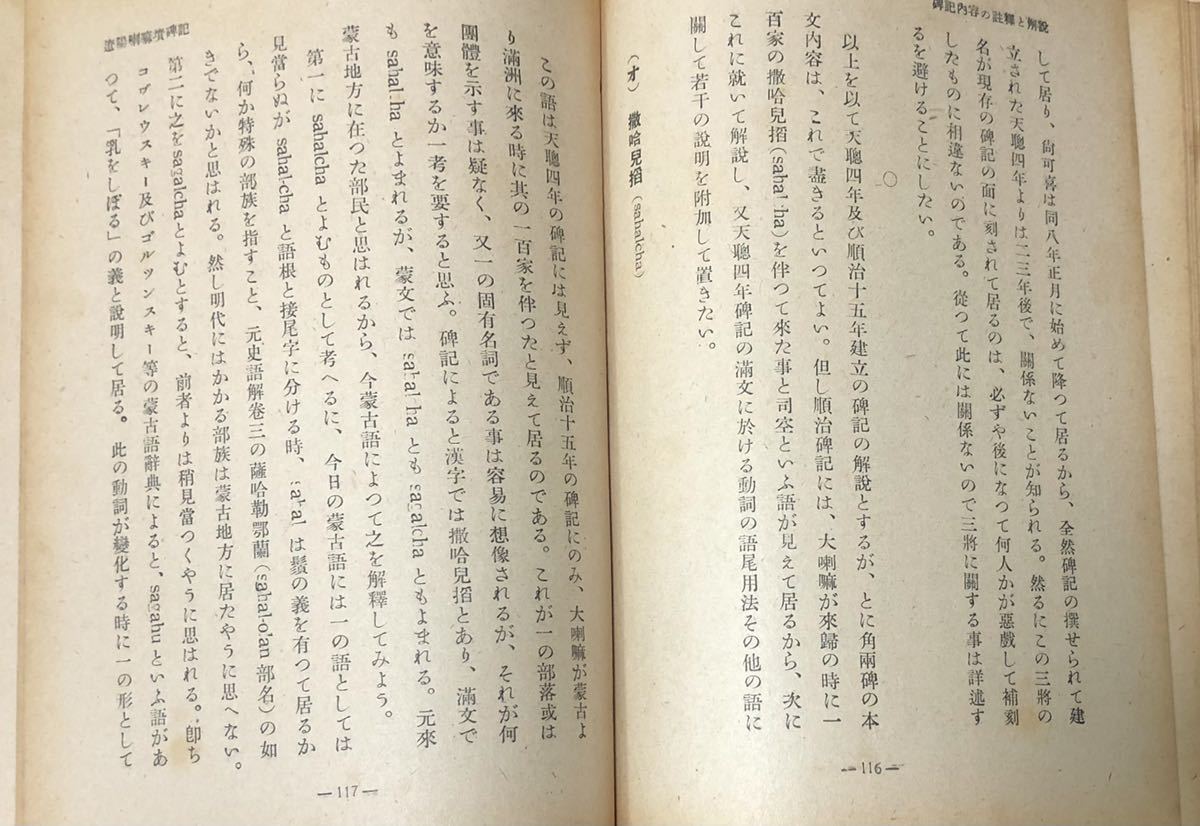 碑記內容の註釋と解說
して居り、尙可喜は同八年正月に始めて降つて居るから、全然碑記の撰せられて建
立された天聰四年よりは二三年後で、關係ないことが知られる。然るにこの三將の
名が現存の碑記の面に刻されて居るのは、必ずや後になつて何人かが惡戲して補刻
したものに相違ないのである。從つて此には關係ないので三將に關する事は詳述す
るを避けることにしたい。
以上を以て天聰四年及び順治十五年建立の碑記の解說とするが、とに角兩碑の本
文內容は、これで盡きるといつてよい。但し順治碑記には、大喇嘛が來歸の時に一
百家の撒哈兒搯(sahal-ha)を伴つて來た事と司空といふ語が見えて居るから、次に
これに就いて解說し、又天聰四年碑記の滿文に於ける動詞の語尾用法その他の語に
關して若干の說明を附加して置きたい。
(オ) 撒哈兒搯(sahalcha)
—116—
遼陽喇嘛墳碑記
この語は天聰四年の碑記には見えず、順治十五年の碑記にのみ、大喇嘛が蒙古よ
り滿洲に來る時に其の一百家を伴つたと見えて居るのである。これが一の部落或は
團體を示す事は疑なく、又一の固有名詞である事は容易に想像されるが、それが何
を意味するか一考を要すると思ふ。碑記によると漢字では撒哈兒搯とあり、滿文で
は sahal-ha とよまれるが、蒙文では sahal-ha とも sagalcha ともよまれる。元來
蒙古地方に在つた部民と思はれるから、今蒙古語によつて之を解釋してみよう。
第一に sahalcha とよむものとして考へるに、今日の蒙古語には一の語としては
見當らぬが sahal-cha と語根と接尾字に分ける時、sahal は鬚の義を有つて居るか
ら、何か特殊の部族を指すこと、元史語解卷三の薩哈勒鄂蘭(sahal-olan 部名)の如
きでないかと思はれる。然し明代にはかかる部族は蒙古地方に居たやうに思へない。
第二に之をsagalchaとよむとすると、前者よりは稍見當つくやうに思はれる。卽ち
コヴレウスキー及びゴルツンスキー等の蒙古語辭典によると、sagahu といふ語があ
つて、「乳をしぼる」の義と說明して居る。此の動詞が變化する時に一の形として
—117—